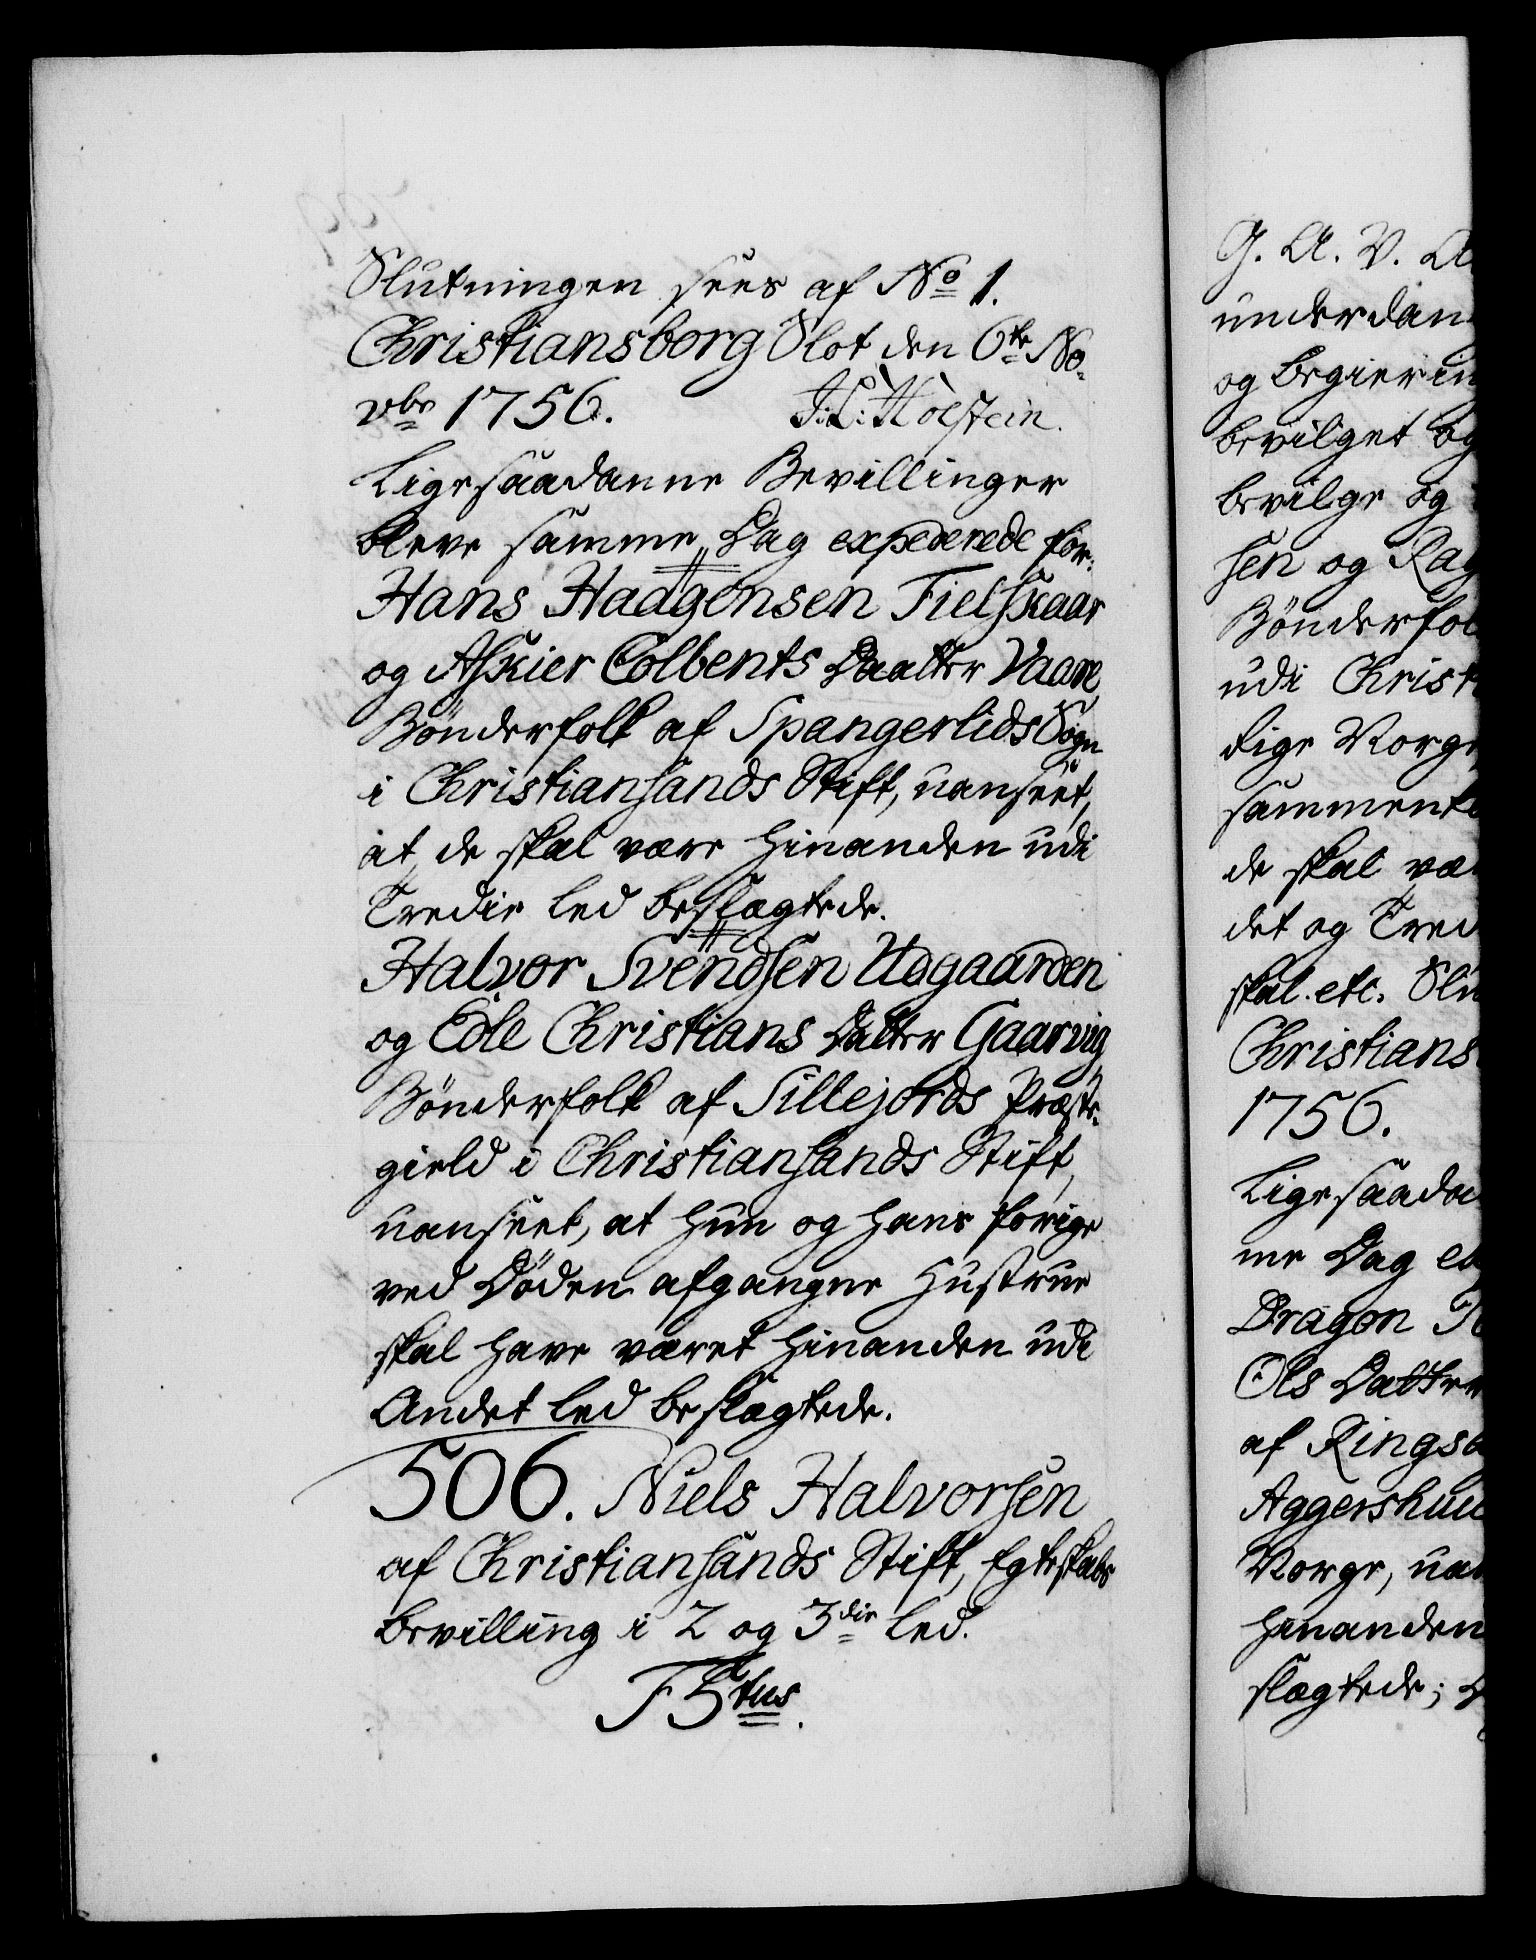 Slutningen sees af No 1.
Christiansborg Slot den 6te No-
vbr 1756. J: L: Holstein.
Ligesaadanne Bevillinger
bleve samme Dag expederede for:
Hans Haagensen Fielskaar
og Askier Colbents Daatter Vaare
Bönderfolk af Spangerlids Sogn
i Christiansands Stift, uanseet,
at de skal være hinanden udi
Tredie Led beslægtede.
Halvor Svendsen Udgaarden
og Edle Christians Datter Gaarvig,
Bönderfolk af Sillejords Præste-
gield i Christiansands Stift,
uanseet, at hun og hans forige
ved Döden afgangne Hustrue
skal have været hinanden udi
Andet Led beslægtede.
506. Niels Halvorsen
af Christiansands Stift, Egteskabs
bevilling i 2 og 3die Led.
F 5tus.
G. A. V. A
underdan
og begierin
bevilget og
bevilge og
sen og Rag
Bönderfol
udi Christ
dige Norge
sammenk
de skal væ
det og Tred
skal etc. Slu
Christians
1756.
Ligesaada
me Dag ex
Dragon
Ols Datter
af Ringsa
Aggershuu
Norge, uan
hinanden
slægtede;